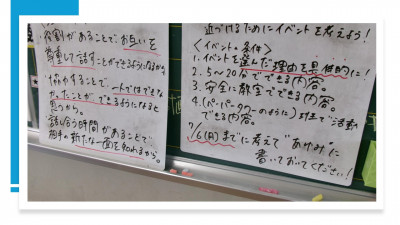 ・役割があることで、お互いを
尊重して話すことができるようになるから。
・協力することで、一人ではできな
かったことができるようになると
思うから。
・話し合う時間があることで、
相手の新たな一面を知れるから。
近づけるためにイベントを考えよう!
<イベントの条件>
1.イベントを選んだ理由を具体的に!
2.5〜20分でできる内容。
3.安全に教室でできる内容。
4.(ペーパータワーのように)班で活動
できる内容。
7/6(月)までに考えて"あゆみ"に
書いておいてください!